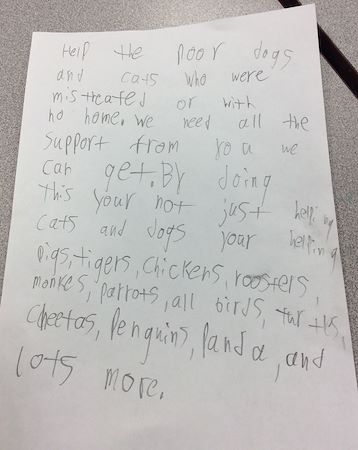 Help the poor dogs
and cats who were
mistreated or with
no home. we need all the
support from you we
can get. By doing
this your not just helping
cats and dogs your helping
pigs, tigers, chickens, roosters,
monkes, parrots, all birds, turtls,
cheetas, Penguins, Panda, and
lots more.